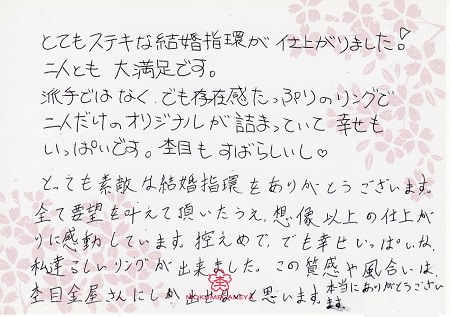 とてもステキな結婚指環が仕上がりました!
二人とも 大満足です。
派手ではなく、でも存在感たっぷりのリングで
二人だけのオリジナルが詰まっていて 幸せも
いっぱいです。杢目もすばらしいし♡
とっても素敵な結婚指環をありがとうございます。
全て要望を叶えて頂いたうえ、想像以上の仕上が
りに感動しています。控えめで、でも幸せいっぱいな、
私達らしいリングが出来ました。この質感や風合いは、
杢目金屋さんにしか出 と思います。本当にありがとうござい
ます。